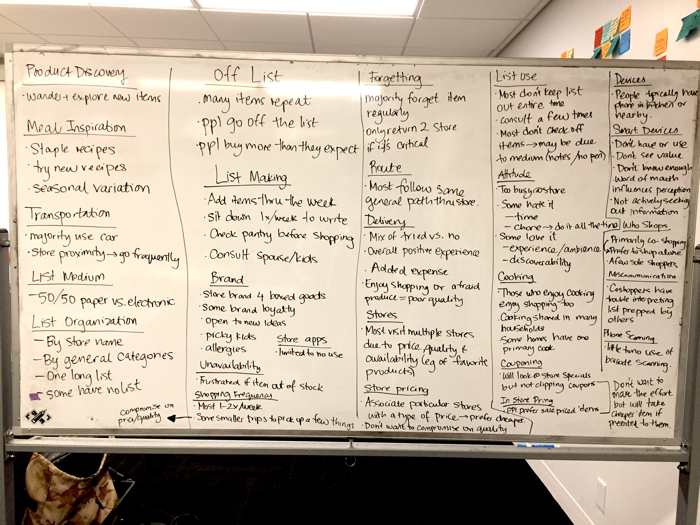 Product Discovery
· Wander + explore new items
Meal Inspiration
· Staple recipes
· try new recipes
· seasonal variation
Transportation
· majority use car
· Store proximity → go frequently
List Medium
- 50/50 paper vs. electronic
List Organization
- By store name
- By general categories
- One long list
- some have no list
Off List
· many items repeat
· ppl go off the list
· ppl buy more than they expect
List Making
· Add items thru the week
· Sit down 1x/week to write
· Check pantry before shopping
· Consult spouse/kids
Brand
· Store brand 4 boxed goods
· Some brand loyalty
· open to new ideas
· picky kids
· allergies
Store apps
· limited to no use
Unavailability
· Frustrated if item out of stock
Shopping Frequency
· Most 1-2x/week
· Some smaller trips to pick up a few things
compromise on
price/quality
Forgetting
majority forget item
regularly
only return 2 store
if it's critical
Route
· Most follow same
general path thru store.
Delivery
· Mix of tried vs. no
· Overall positive experience
· Added expense
· Enjoy shopping or afraid
produce = poor quality
Stores
· Most visit multiple stores
due to price, quality &
availability (eg of favorite
products)
Store pricing
· Associate particular stores
with a type of price → prefer cheaper
· Don't want to compromise on quality
List use
· Most don't keep list
out entire time
· consult a few times
· Most don't check off
items → may be due
to medium (notes/no pen)
Attitude
· Too busy to store
· Some hate it
- time
- chore → do it all the time
· Some love it
- experience/ambience
- discoverability
Cooking
· Those who enjoy cooking
enjoy shopping too
· Cooking shared in many
households
· Some homes have one
primary cook
Couponing
· Will look @ store specials
but not clipping coupons
In Store Pricing
· PPl prefer sale priced items
Devices
· People typically have
phone in kitchen or
nearby.
Smart Devices
· Don't have or use
· Don't see value
· Don't know enough
· Word of mouth
influences perception
· Not actively seeking
out information
Who Shops
· Primarily co-shopping
· Prefer to shop alone
· A few sole shoppers
Miscommunication
· Coshoppers have
trouble interpreting
list prepped by
others
Phone Scanning
· little to no use of
barcode scanning.
Don't want to
make the effort
but will take
cheaper item if
presented to them.